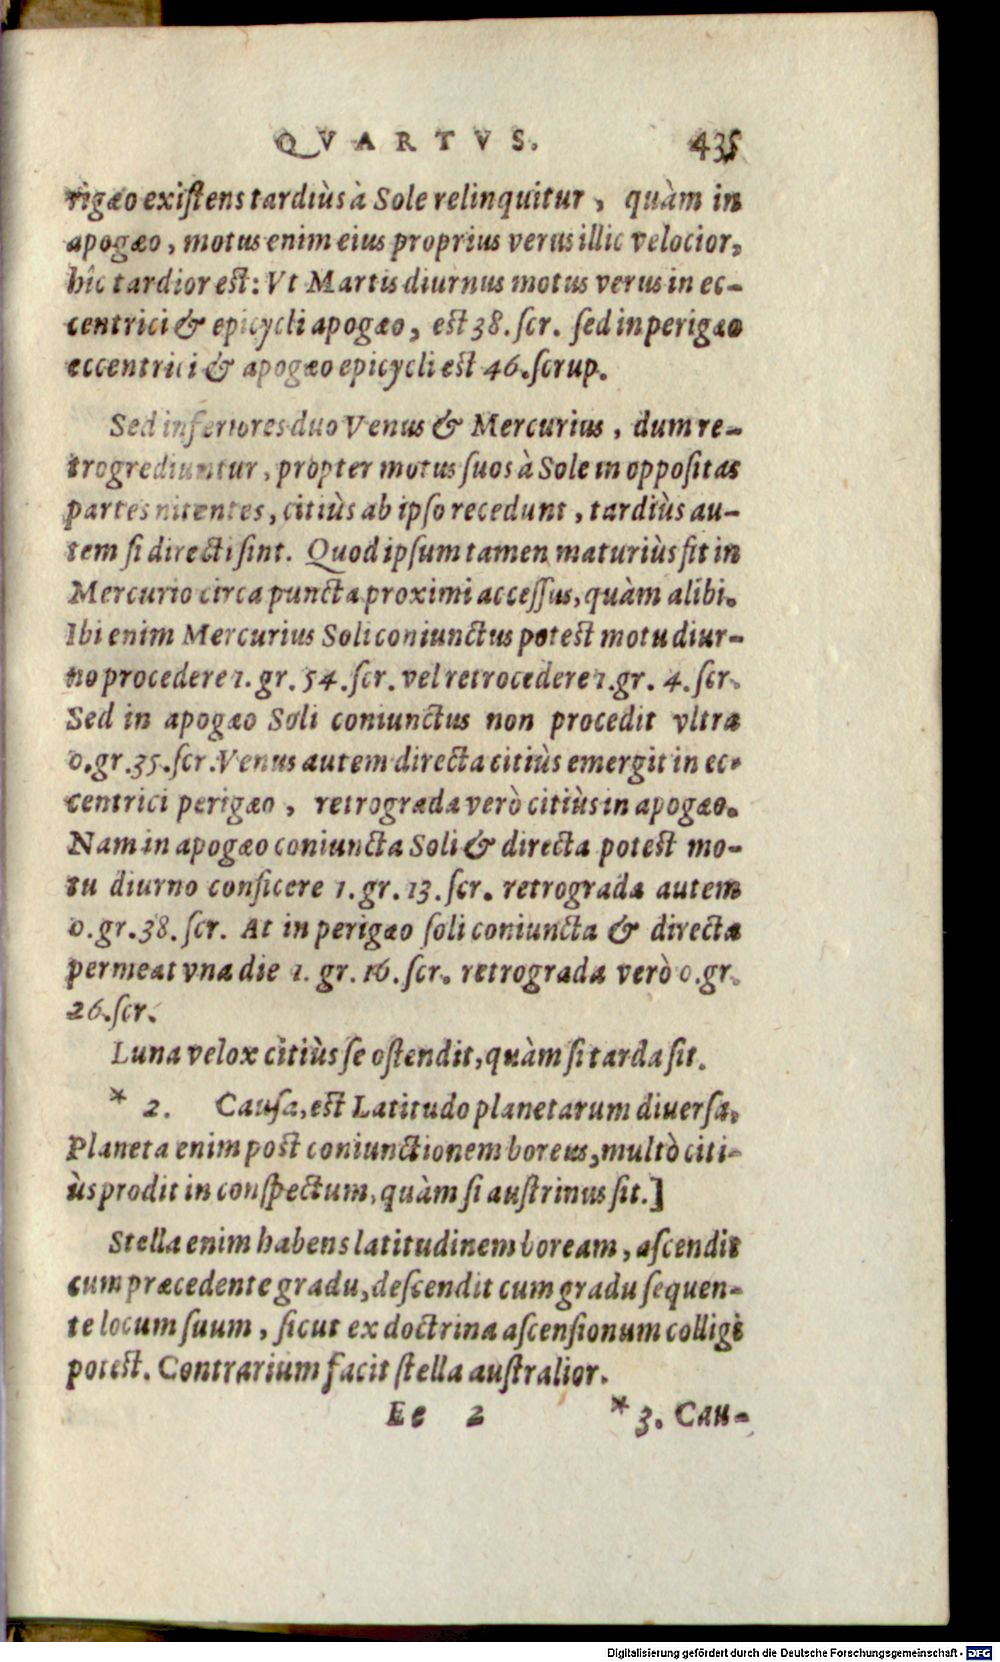 QVARTVS. 435
rigæo existens tardiùs à Sole relinquitur, quàm in
apogæo, motus enim eius proprius verus illic velocior,
hîc tardior est: Vt Martis diurnus motus verus in ec-
centrici & epicycli apogæo, est 38. scr. sed in perigæo
eccentrici & apogæo epicycli est 46. scrup.
Sed inferiores duo Venus & Mercurius, dum re-
trogrediuntur, propter motus suos à Sole in oppositas
partes nitentes, citiùs ab ipso recedunt, tardiùs au-
tem si directi sint. Quod ipsum tamen maturiùs fit in
Mercurio circa puncta proximi accessus, quàm alibi.
Ibi enim Mercurius Soli coniunctus potest motu diur-
no procedere 1. gr. 54. scr. vel retrocedere 1. gr. 4. scr.
Sed in apogæo Soli coniunctus non procedit vltra
0. gr. 35. scr. Venus autem directa citiùs emergit in ec-
centrici perigæo, retrograda verò citiùs in apogæo.
Nam in apogæo coniuncta Soli & directa potest mo-
tu diurno conficere 1. gr. 13. scr. retrograda autem
0. gr. 38. scr. At in perigæo soli coniuncta & directa
permeat vna die 1. gr. 16. scr. retrograda verò 0. gr.
26. scr.
Luna velox citiùs se ostendit, quàm si tarda sit.
* 2. Causa, est Latitudo planetarum diuersa.
Planeta enim post coniunctionem boreus, multò citi-
ùs prodit in conspectum, quàm si austrinus sit.]
Stella enim habens latitudinem boream, ascendit
cum præcedente gradu, descendit cum gradu sequen-
te locum suum, sicut ex doctrina ascensionum colligi
potest. Contrarium facit stella australior.
Ee 2 * 3. Cau-
Digitalisierung gefördert durch die Deutsche Forschungsgemeinschaft - DFG